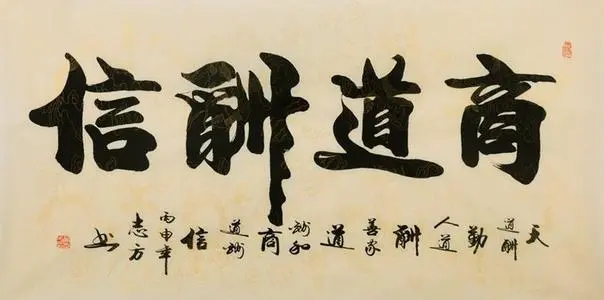 商道酬信
天道酬勤人道酬善家道酬和商道酬信
丙申年
志方
书